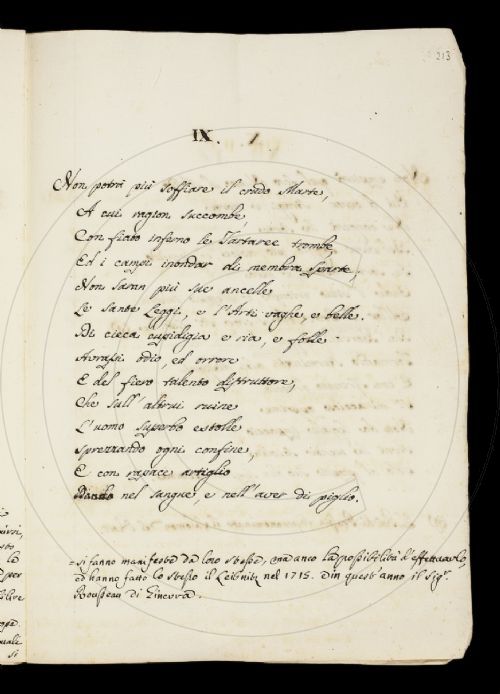 213
IX.
Non potrà più soffiare il crudo Marte,
A cui ragion succombe
Con fiato inferno le Tartaree trombe,
Ed i campi inondar di membra sparte;
Non saran più sue ancelle
Le Sante Leggi, e l'Arti vaghe, e belle.
Di cieca cupidigia e ria, e folle
Avrassi odio, ed orrore
E del fiero talento distruttore,
Che sull'altrui ruine
L'uomo superbo estolle
Sprezzando ogni confine,
E con rapace artiglio
Dando nel sangue, e nell'aver di piglio.
= si fanno manifesta da loro stessa, ma anco la possibilità d'effettuarlo,
ed hanno fatto lo stesso il Leibnitz nel 1715. Din quest'anno il Sigr.
Rousseau di Ginevra.